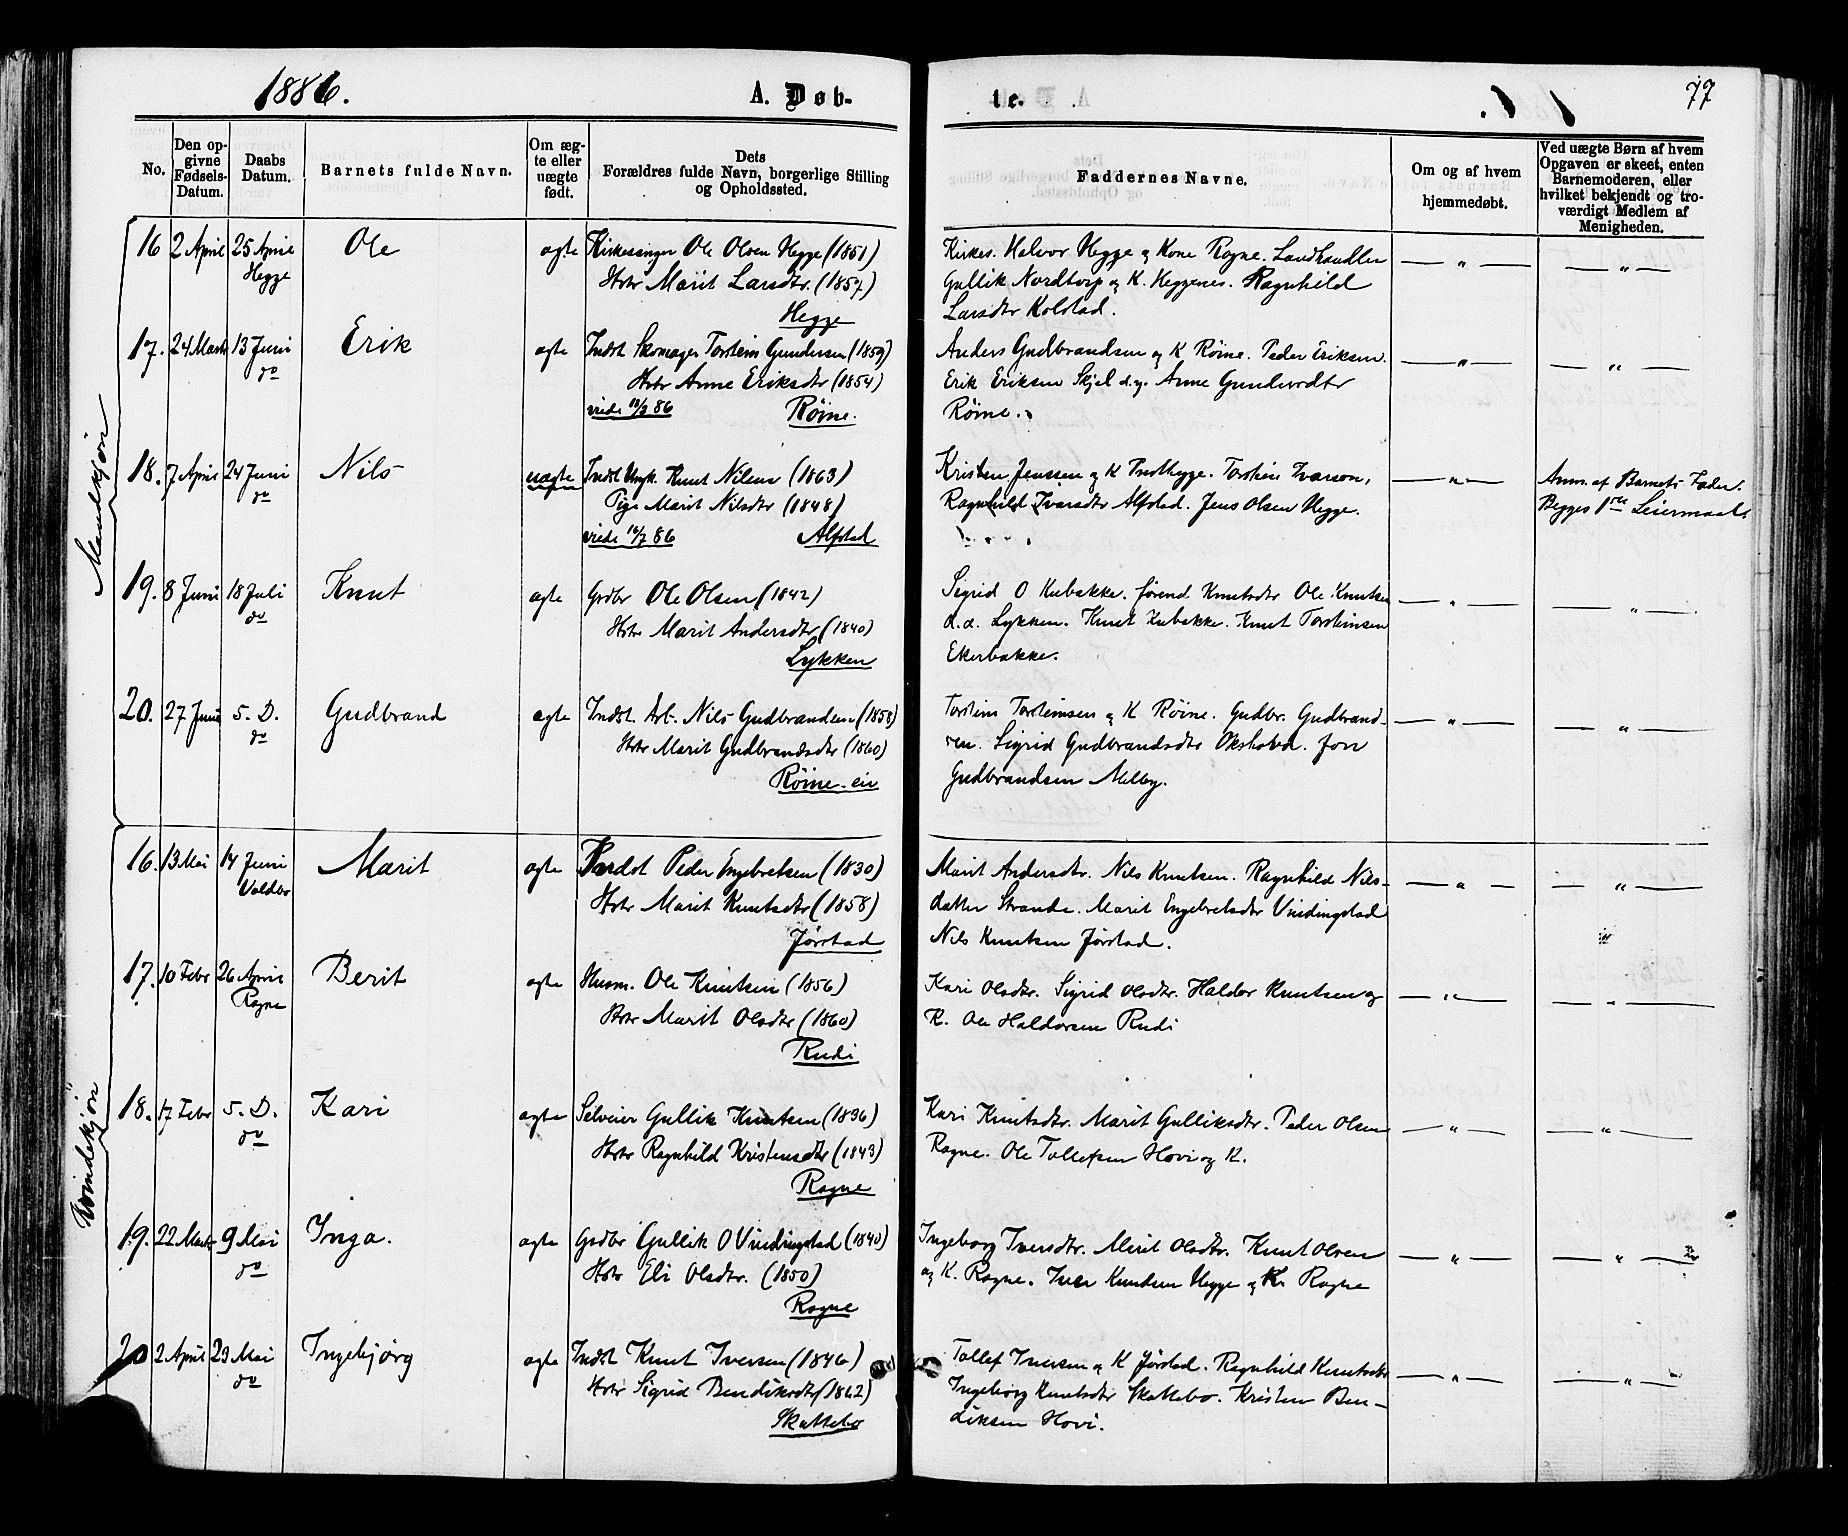 1886.
A. Døb-
te.
77
No.
Den op-
givne
Fødsels-
Datum.
Daabs
Datum.
Barnets fulde Navn.
Om æg-
te eller
uægte
født.
Dets
Forældres fulde Navn, borgerlige Stilling
og Opholdssted.
Faddernes Navne.
Om og af hvem
hjemmedøbt.
Ved uægte Børn af hvem
Opgaven er skeet, enten
Barnemoderen, eller
hvilket bekjendt og tro-
værdigt Medlem af
Menigheden.
Mandkjøn
16 2 April 25 April Ole ægte Kirkesanger Ole Olsen Hegge (1851) Kirkes. Halvor Hegge og Kone Rogne. Landhandler — " — — " —
Hegge Hstr Marit Larsdtr. (1857) Gullik Nordtorp og K. Heggenes. Ragnhild
Hegge Larsdtr Kolstad.
17. 24 Marts 13 Juni Erik ægte Indst Skomager Torstein Gundersen (1859) Anders Gudbrandsen og K Røine. Peder Eriksen. — " — — " —
do Hstr Anne Eriksdtr (1854) Erik Eriksen Skjel d.y. Anne Gundersdtr
viede 18/3 86 Røine. Røine.
18. 7 April 24 Juni Nils uægte Indst Ungk. Knut Nilsen (1863) Kristen Jenssen og K . Torstein Ivarson, — " — Anm. af Barnets Fader.
do Pige Marit Nilsdtr (1848) Ragnhild Ivarsdtr Alfstad. Jens Olsen Hegge. Begges 1ste Leiermaal.
viede 14/7 86 Alfstad
19. 8 Juni 18 Juli Knut ægte Grdbr Ole Olsen (1842) Sigrid O Kubakke. Jørend Knutsdtr Ole Knutsen — " — — " —
do Hstr Marit Andersdtr (1840) d.d. Lykken. Knut Kubakke. Knut Torsteinsen
Lykken Ekerbakke.
20. 27 Juni S. D. Gudbrand ægte Indst. Arb. Nils Gudbrandsen (1858) Torstein Torsteinsen og K Røine. Gudbr. Gudbrand- — " — — " —
do Hstr Marit Gudbrandsdtr (1860) sen. Sigrid Gudbrandsdtr Okshovd. Jon
Røine-eie Gudbrandsen Melby.
Kvindekjøn
16. 13 Mai 14 Juni Marit ægte Indst Peder Engebretsen (1830) Marit Andersdtr. Nils Knutsen. Ragnhild Nils- — " — — " —
Voldbo Hstr Marit Knutsdtr (1858) datter Strande. Marit Engebretsdtr Vindingstad
Jørstad Nils Knutsen Jørstad.
17. 10 Febr 26 April Berit ægte Husm. Ole Knutsen (1856) Kari Olsdtr. Sigrid Olsdtr. Haldor Knutsen og — " — — " —
Rogne Hstr Marit Olsdtr (1860) K. Ole Haldorsen Rudi
Rudi
18. 17 Febr S. D. Kari ægte Selveier Gullik Knutsen (1836) Kari Knutsdtr. Marit Gulliksdtr. Peder Olsen — " — — " —
do Hstr Ragnhild Kristensdtr (1843) Rogne. Ole Tollefsen Hovi og K.
Rogne
19. 22 Marts 9 Mai Inga. ægte Grdbr Gullik O Vindingstad (1840) Ingeborg Iversdtr. Marit Olsdtr. Knut Olsen — " — — " —
do Hstr Eli Olsdtr. (1850) og K. Rogne. Iver Knudsen Hegge og K. Rogne
Rogne
20 2 April 23 Mai Ingebjørg ægte Indst Knut Iversen (1846) Tollef Iversen og K Jørstad. Ragnhild Knutsdtr — " — — " —
do Hstr Sigrid Bendiksdtr (1862) Ingeborg Knutsdtr Skattebo. Kristen Ben-
Skattebo diksen Hovi.